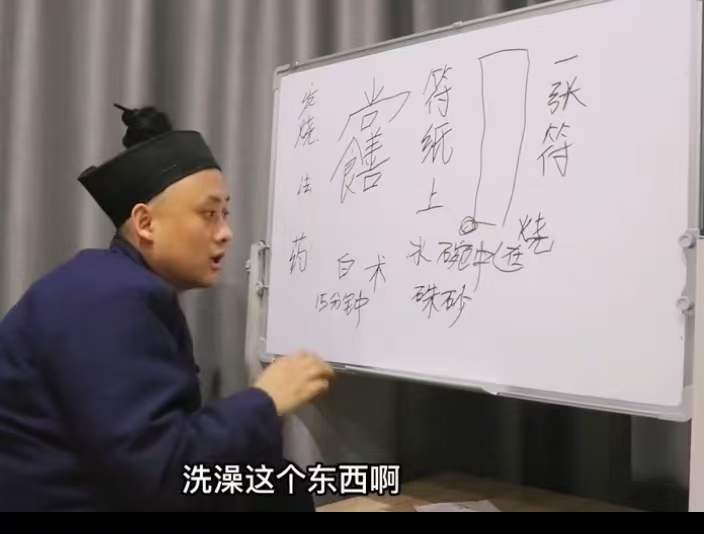 发烧
法
药
符纸上
一张符
白术
15分钟
水碗中
烧
朱砂
洗澡这个东西啊